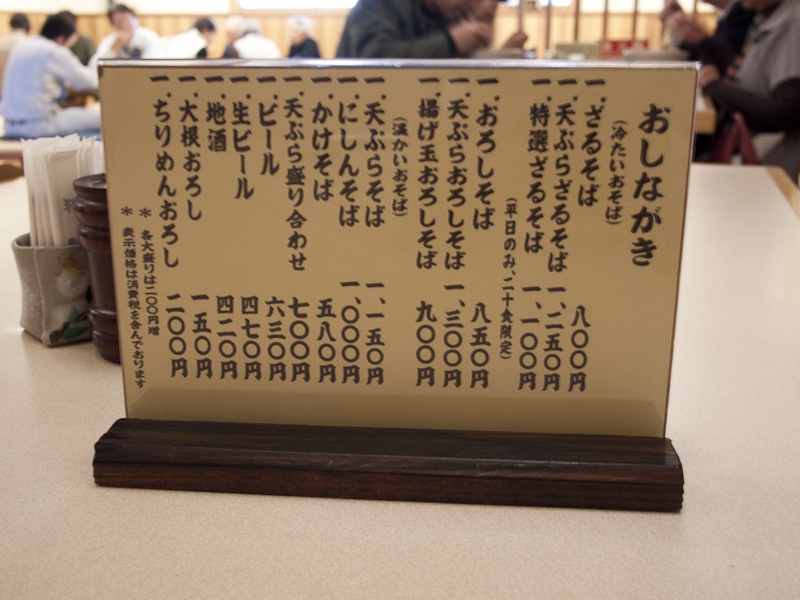 おしながき
（冷たいおそば）
一．ざるそば 八〇〇円
一．天ぷらざるそば 一、二五〇円
一．特選ざるそば 一、一〇〇円
（平日のみ、二十食限定）
一．おろしそば 八五〇円
一．天ぷらおろしそば 一、三〇〇円
一．揚げ玉おろしそば 九〇〇円
（温かいおそば）
一．天ぷらそば 一、一五〇円
一．にしんそば 一、〇〇〇円
一．かけそば 五八〇円
一．天ぷら盛り合わせ 七〇〇円
一．ビール 六三〇円
一．生ビール 四七〇円
一．地酒 四二〇円
一．大根おろし 一五〇円
一．ちりめんおろし 二〇〇円
＊ 各大盛りは二〇〇円増
＊ 表示価格は消費税を含んでおります